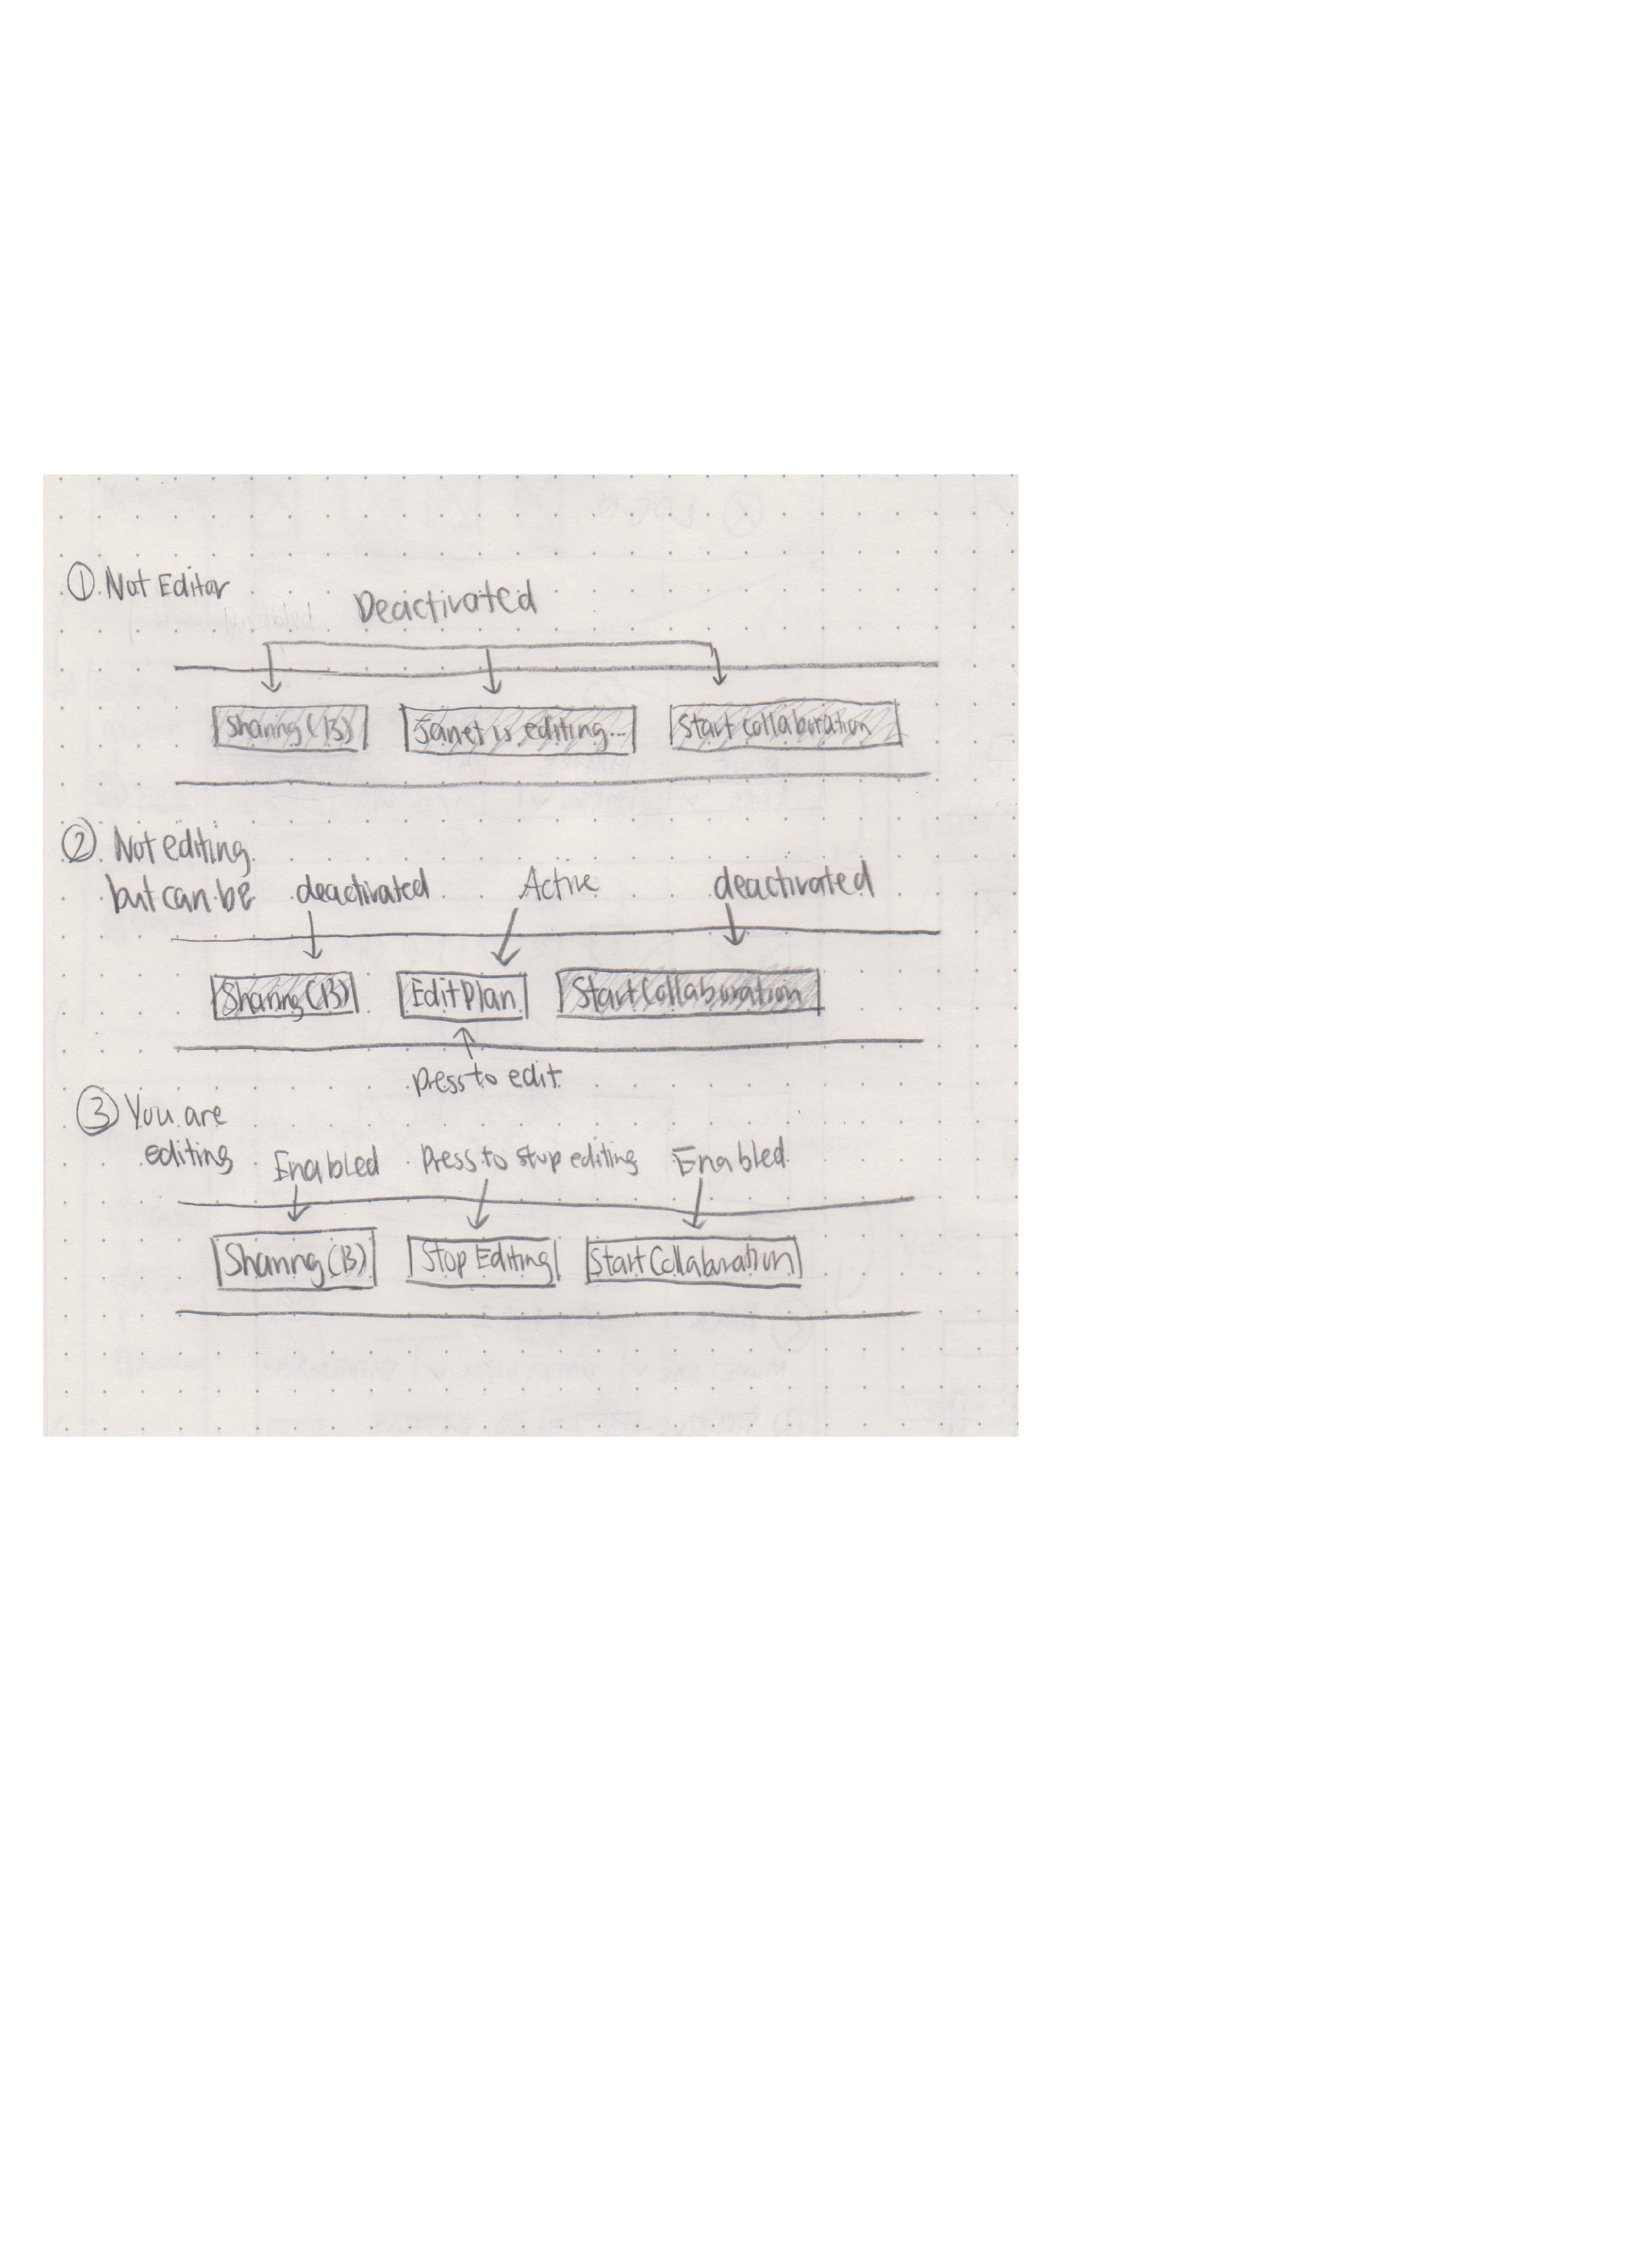 ① Not Editor
Deactivated
Sharing (13) Janet is editing... Start collaboration
② Not editing
but can be deactivated Active deactivated
Sharing (13) Edit Plan Start Collaboration
press to edit
③ You are
editing Enabled Press to stop editing Enabled
Sharing (13) Stop Editing Start Collaboration